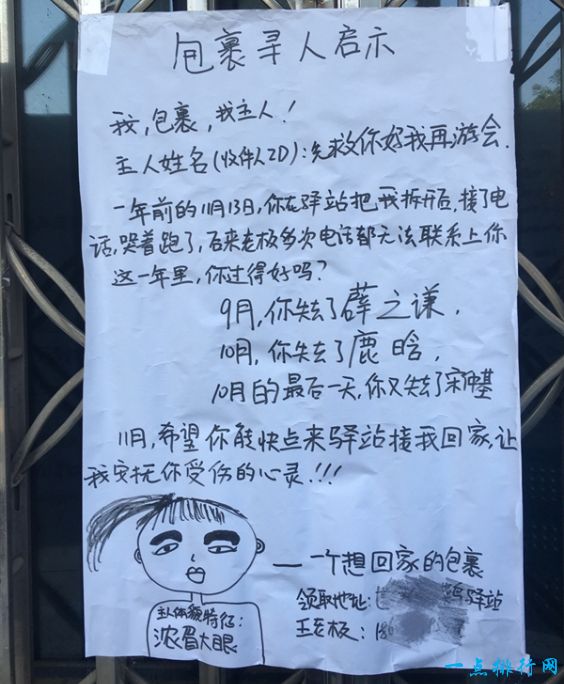 包裹寻人启示
我，包裹，找主人！
主人姓名(收件人ID)：先救你好我再游会.
一年前的11月13日，你在驿站把我拆开后，接了电
话，哭着跑了，后来老板多次电话都无法联系上你
这一年里，你过得好吗？
9月，你失去了薛之谦，
10月，你失去了鹿晗，
10月的最后一天，你又失去了宋仲基
11月，希望你能快点来驿站接我回家，让
我安抚你受伤的心灵！！！
——一个想回家的包裹
领取地址：驿站
王老板：
主人体貌特征：
浓眉大眼
一点排行网